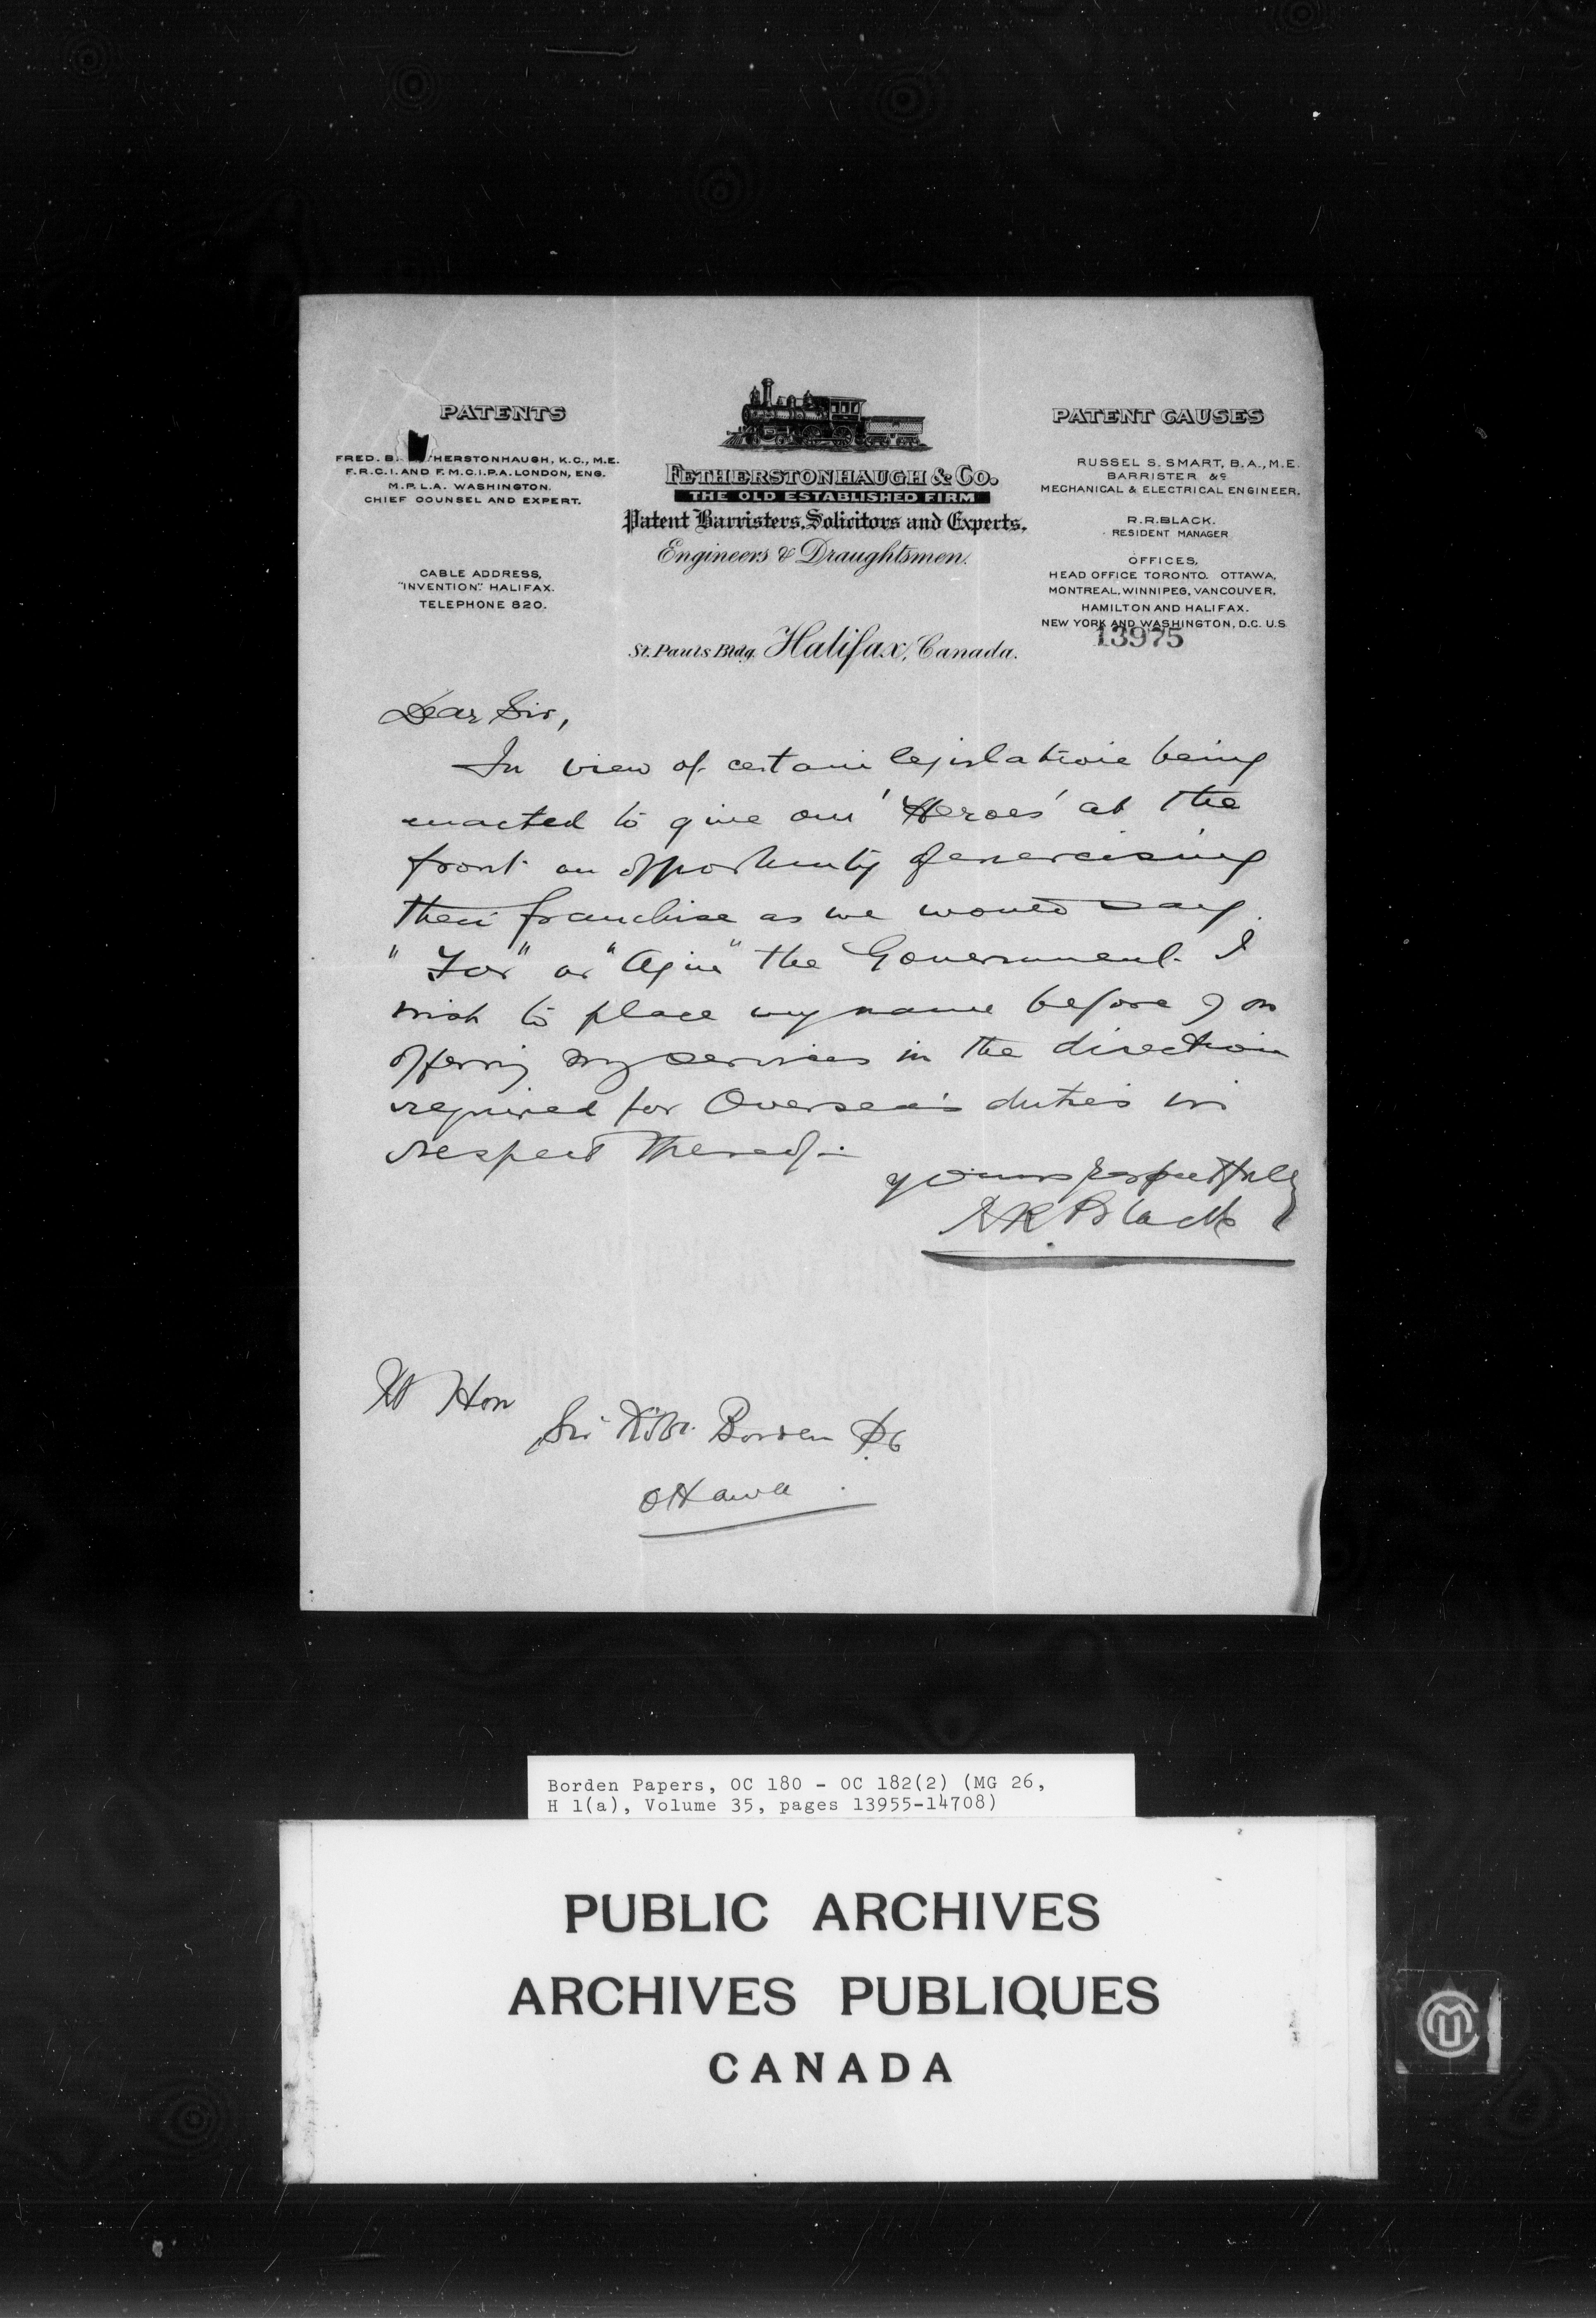 PATENTS
FRED. B. HERSTONHAUGH, K.C., M.E.
F.R.C.I. AND F.M.C.I.P.A. LONDON, ENG.
M.P.L.A. WASHINGTON.
CHIEF COUNSEL AND EXPERT.
CABLE ADDRESS,
"INVENTION" HALIFAX.
TELEPHONE 820.
FETHERSTONHAUGH & CO.
THE OLD ESTABLISHED FIRM
Patent Barristers, Solicitors and Experts,
Engineers & Draughtsmen.
St. Pauls Bldg. Halifax, Canada.
PATENT CAUSES
RUSSEL S. SMART, B.A., M.E.
BARRISTER &c
MECHANICAL & ELECTRICAL ENGINEER.
R.R. BLACK.
RESIDENT MANAGER
OFFICES,
HEAD OFFICE TORONTO. OTTAWA,
MONTREAL, WINNIPEG, VANCOUVER,
HAMILTON AND HALIFAX.
NEW YORK AND WASHINGTON, D.C. U.S
13975
Dear Sir,
In view of certain legislation being
enacted to give our 'Heroes' at the
front an opportunity of exercising
their franchise as we would say
"For" or "Agin" the Government. I
wish to place my name before you
offering my services in the direction
required for Oversea's duties in
respect thereof.
Yours respectfully
R R Black
Rt Hon
Sir R. L. Borden PC
Ottawa
Borden Papers, OC 180 - OC 182(2) (MG 26,
H 1(a), Volume 35, pages 13955-14708)
PUBLIC ARCHIVES
ARCHIVES PUBLIQUES
CANADA